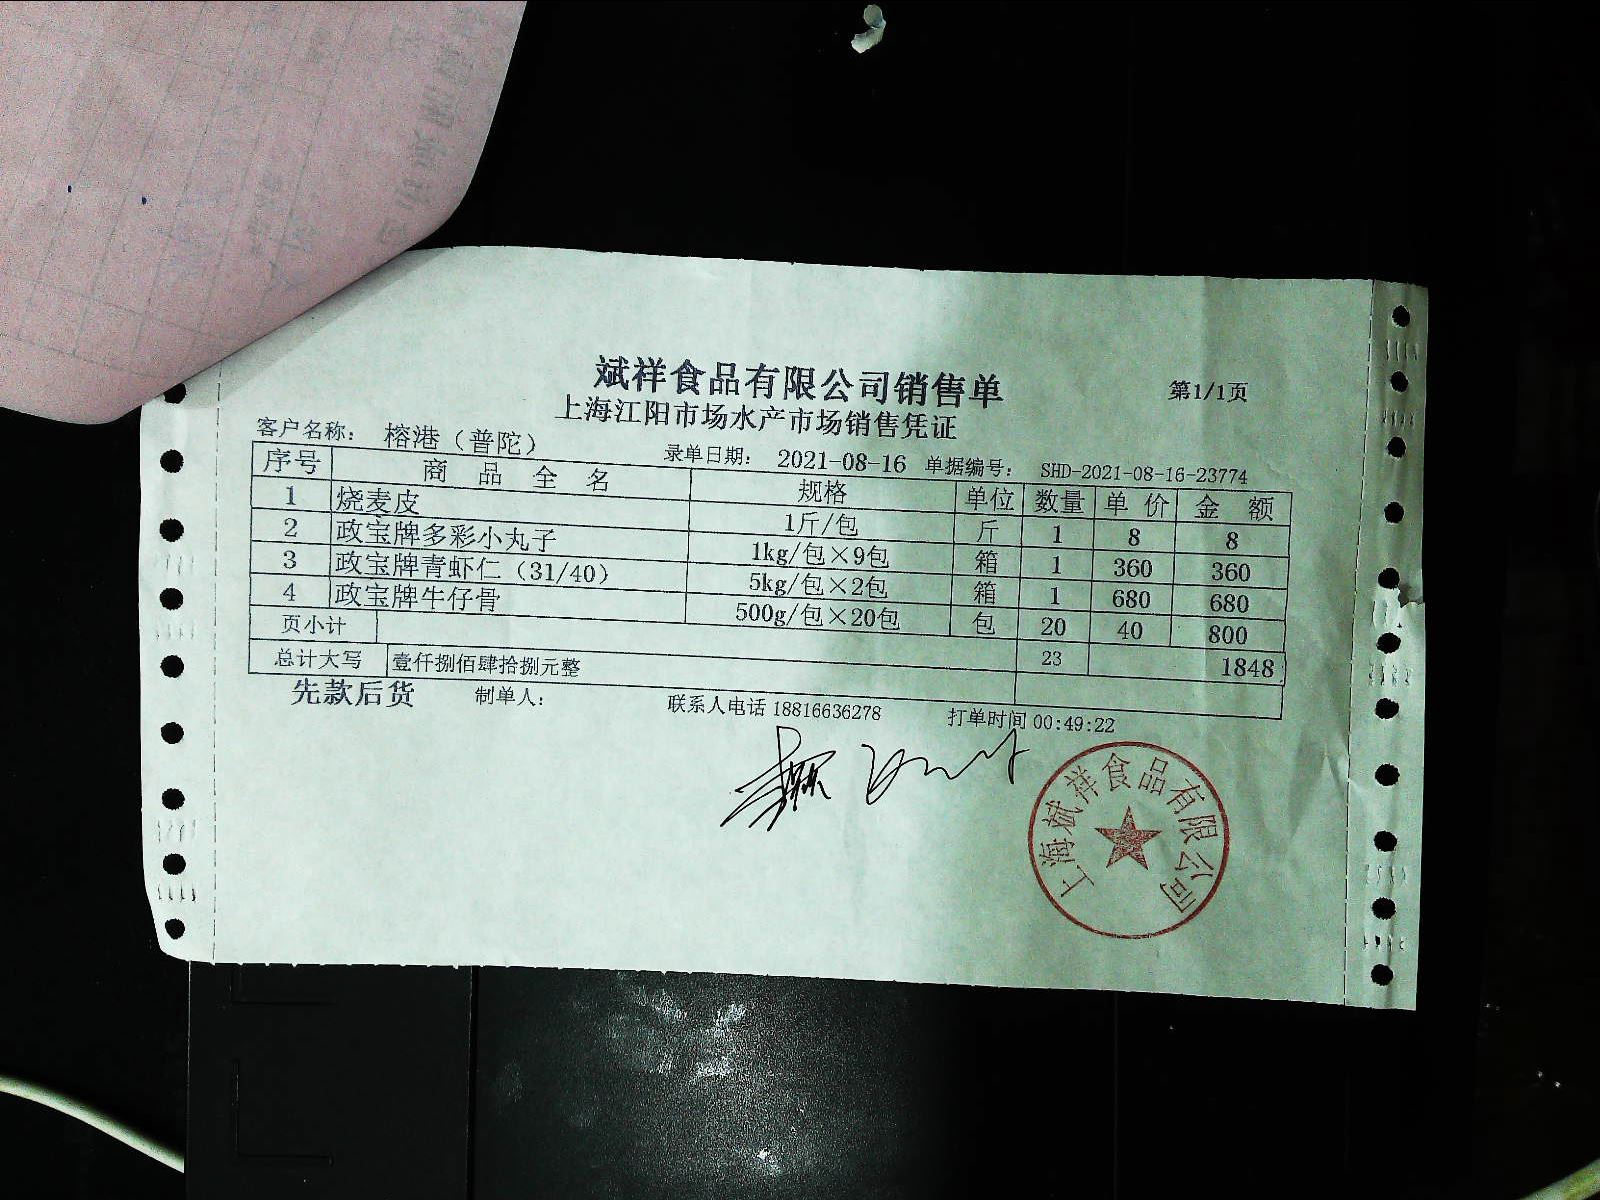 斌祥食品有限公司销售单
第1/1页
上海江阳市场水产市场销售凭证
客户名称： 榕港（普陀） 录单日期： 2021-08-16 单据编号： SHD-2021-08-16-23774
序号 商品全名 规格 单位 数量 单价 金额
1 烧麦皮 1斤/包 斤 1 8 8
2 政宝牌多彩小丸子 1kg/包×9包 箱 1 360 360
3 政宝牌青虾仁（31/40） 5kg/包×2包 箱 1 680 680
4 政宝牌牛仔骨 500g/包×20包 包 20 40 800
页小计 23 1848
总计大写 壹仟捌佰肆拾捌元整
先款后货 制单人： 联系人电话 18816636278 打单时间 00:49:22
上海斌祥食品有限公司